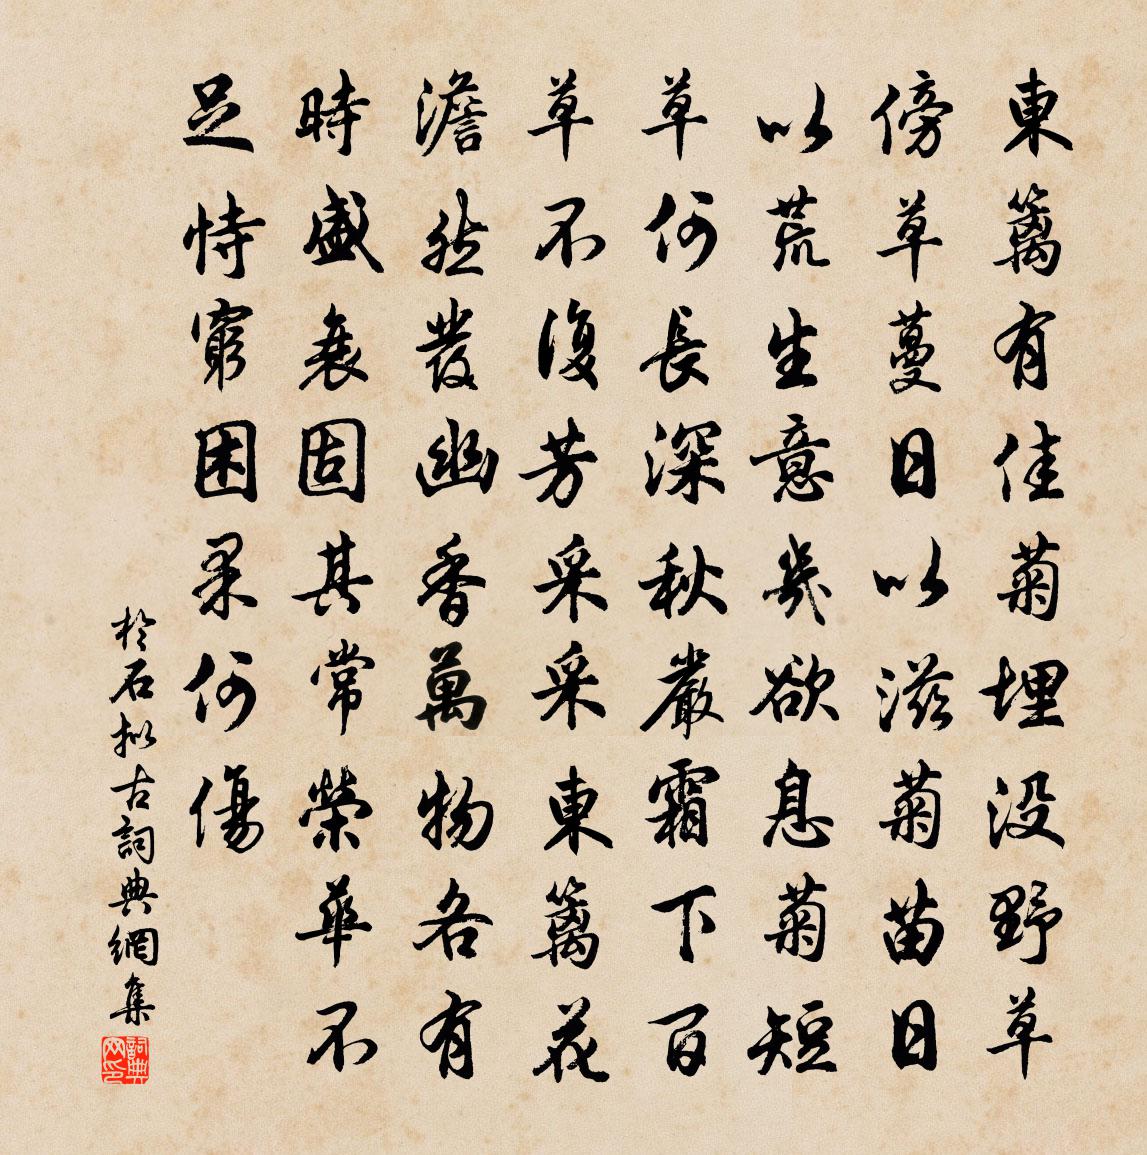 東籬有佳菊埋没野草
傍草蔓日以滋菊苗日
以荒生意幾欲息菊短
草何長深秋嚴霜下百
草不復芳采采東籬花
澹然發幽香萬物各有
時盛衰固其常榮華不
足恃窮困果何傷
於石拟古詞典網集
詞典网印